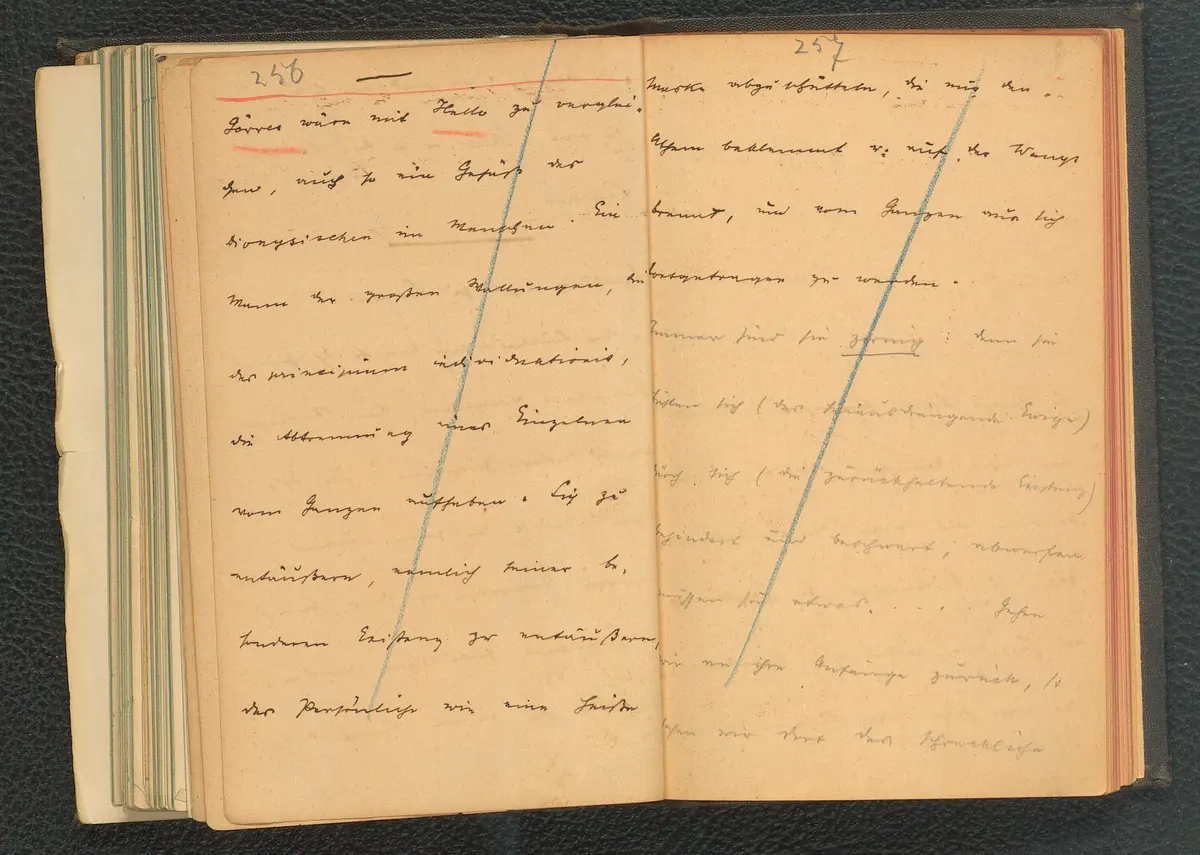 256
Görres wäre mit Hello zu verglei-
chen, auch so ein Gefäß des
dionysischen im Menschen. Ein
Mann der großen Wallungen, die
das principium individuationis,
die Abtrennung eines Einzelnen
vom Ganzen aufheben. Sich zu
entäußern, nemlich seiner be-
sonderen Leistung zu entäußern,
das Persönliche wie eine heiße
257
Maske abzuschütteln, die nur den
Athem beklemmt u: auf der Wange
brennt, und vom Ganzen aus sich
fortgetragen zu werden.
Immer sind sie zornig: denn sie
fühlen sich (das hinausdrängende Ewige)
durch sich (die zurückhaltende Leistung)
behindert und beschwert, abwerfen
müssen sie etwas. . . . . Gehen
wir an ihre Anfänge zurück, so
sehen wir dort das Schreckliche